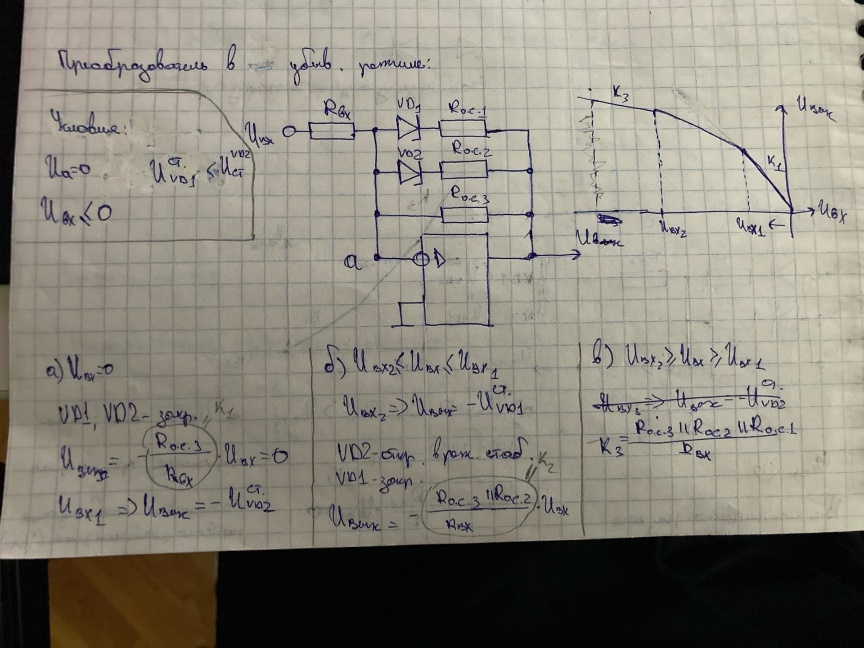 Преобразователь в убыв. режиме:
Условия:
Uа=0 U ст. VD1 ≤ U VD2 ст
Uвх ≤ 0
Uвх
Rвх
VD1
Rо.с.1
VD2
Rо.с.2
Rо.с.3
a
Uвых
K3
Uвых
K1
Uвх
Uвх2
Uвх1 ←
а) Uвх=0
VD1, VD2 - закр.
K1
Uвых = - Rо.с.3 / Rвх · Uвх = 0
Uвх1 => Uвых = - U ст. VD2
б) Uвх2 ≤ Uвх ≤ Uвх1
Uвх2 => Uвых = - U ст. VD1
VD2 - откр. в реж. стаб.
VD1 - закр.
K2
Uвых = - Rо.с.3 || Rо.с.2 / Rвх · Uвх
в) Uвх2 ≥ Uвх ≥ Uвх1
Uвх3 => Uвых = - U ст. VD2
K3 = Rо.с.3 || Rо.с.2 || Rо.с.1 / Rвх